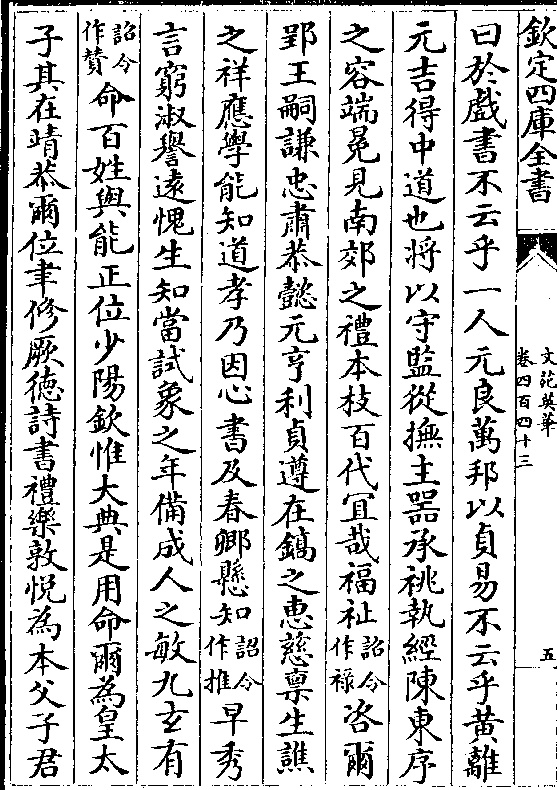 欽定四庫全書
文苑英華
卷四百四十三
五
曰於戲書不云乎一人元良萬邦以貞易不云乎黃離
元吉得中道也將以守監從撫主器承祧執經陳東序
之容端冕見南郊之禮本枝百代冝哉福祉詔令作祿咨爾
郢王嗣謙忠肅恭懿元亨利貞遵在鎬之恵慈禀生譙
之祥應學能知道孝乃因心書及春卿懸知詔令作推早秀
言窮淑譽遠愧生知當試象之年備成人之敏九玄有
詔令作賛命百姓與能正位少陽欽惟大典是用命爾為皇太
子其在靖恭爾位聿修厥徳詩書禮樂敦悅為本父子君